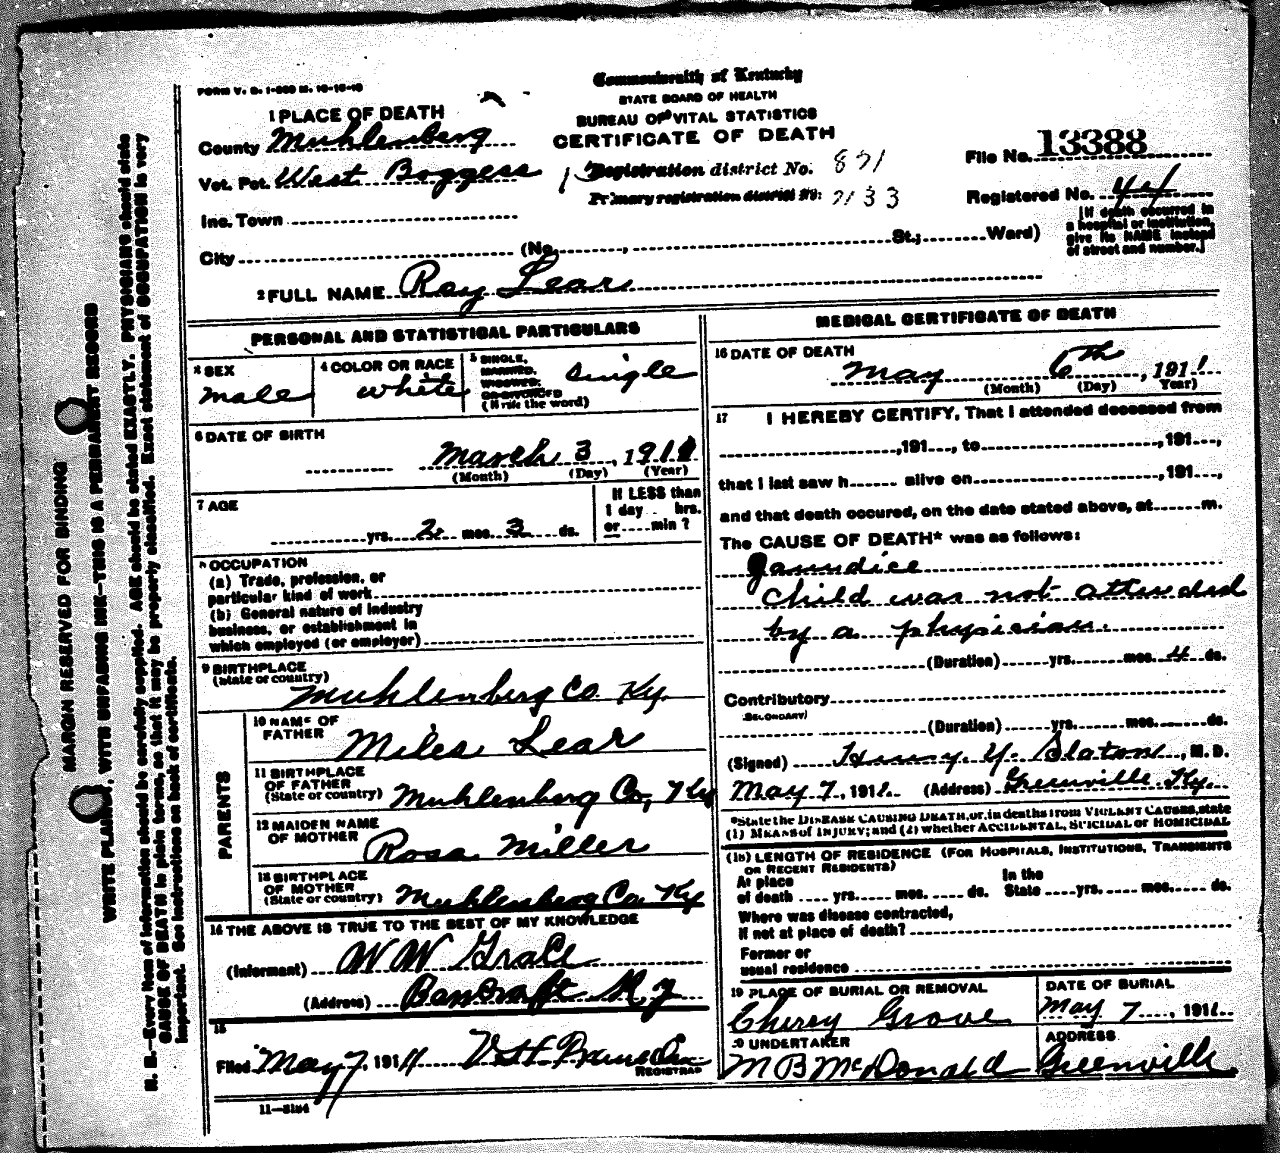 FORM V. S. 1-
Commonwealth of Kentucky
STATE BOARD OF HEALTH
BUREAU OF VITAL STATISTICS
CERTIFICATE OF DEATH
1 PLACE OF DEATH
County Muhlenberg
Vot. Pct. West Boggess
Inc. Town
City (No. , St.; Ward)
Registration district No. 871
Primary registration district No. 2133
File No. 13388
Registered No. 44
[If death occurred in
a hospital or institution,
give its NAME instead
of street and number.]
2 FULL NAME Ray Lear
PERSONAL AND STATISTICAL PARTICULARS
3 SEX
male
4 COLOR OR RACE
white
5 SINGLE,
MARRIED,
WIDOWED,
OR DIVORCED
(Write the word)
single
6 DATE OF BIRTH
March 3, 1911
(Month) (Day) (Year)
7 AGE
yrs. 2 mos. 3 ds.
If LESS than
1 day hrs.
or min ?
8 OCCUPATION
(a) Trade, profession, or
particular kind of work
(b) General nature of industry
business, or establishment in
which employed (or employer)
9 BIRTHPLACE
(State or country)
Muhlenberg Co Ky.
PARENTS
10 NAME OF
FATHER
Miles Lear
11 BIRTHPLACE
OF FATHER
(State or country)
Muhlenberg Co, Ky
12 MAIDEN NAME
OF MOTHER
Rosa Miller
13 BIRTHPLACE
OF MOTHER
(State or country)
Muhlenberg Co. Ky
14 THE ABOVE IS TRUE TO THE BEST OF MY KNOWLEDGE
(Informant) W W Grace
(Address) Bancroft Ky
15
Filed May 7, 1911
REGISTRAR
11-
MEDICAL CERTIFICATE OF DEATH
16 DATE OF DEATH
May 6th, 1911
(Month) (Day) Year)
17 I HEREBY CERTIFY, That I attended deceased from
,191 , to ,191 ,
that I last saw h alive on ,191 ,
and that death occured, on the date stated above, at m.
The CAUSE OF DEATH* was as follows:
Jaundice
child was not attended
by a physician.
(Duration) yrs. mos. 4 ds.
Contributory
(SECONDARY)
(Duration) yrs. mos. ds.
(Signed) Henry Y. Slaton, M. D.
May 7, 1911. (Address) Greenville Ky.
*State the DISEASE CAUSING DEATH, or, in deaths from VIOLENT CAUSES, state
(1) MEANS of INJURY; and (2) whether ACCIDENTAL, SUICIDAL or HOMICIDAL
(18) LENGTH OF RESIDENCE (FOR HOSPITALS, INSTITUTIONS, TRANSIENTS
OR RECENT RESIDENTS)
At place
of death yrs. mos. ds.
In the
State yrs. mos. ds.
Where was disease contracted,
if not at place of death?
Former or
usual residence
19 PLACE OF BURIAL OR REMOVAL
Cherry Grove
DATE OF BURIAL
May 7, 1911.
20 UNDERTAKER
M B McDonald
ADDRESS
Greenville
MARGIN RESERVED FOR BINDING
WRITE PLAINLY, WITH UNFADING INK—THIS IS A PERMANENT RECORD
N. B.—Every item of information should be carefully supplied. AGE should be stated EXACTLY. PHYSICIANS should state
CAUSE OF DEATH in plain terms, so that it may be properly classified. Exact statement of OCCUPATION is very
important. See instructions on back of certificate.